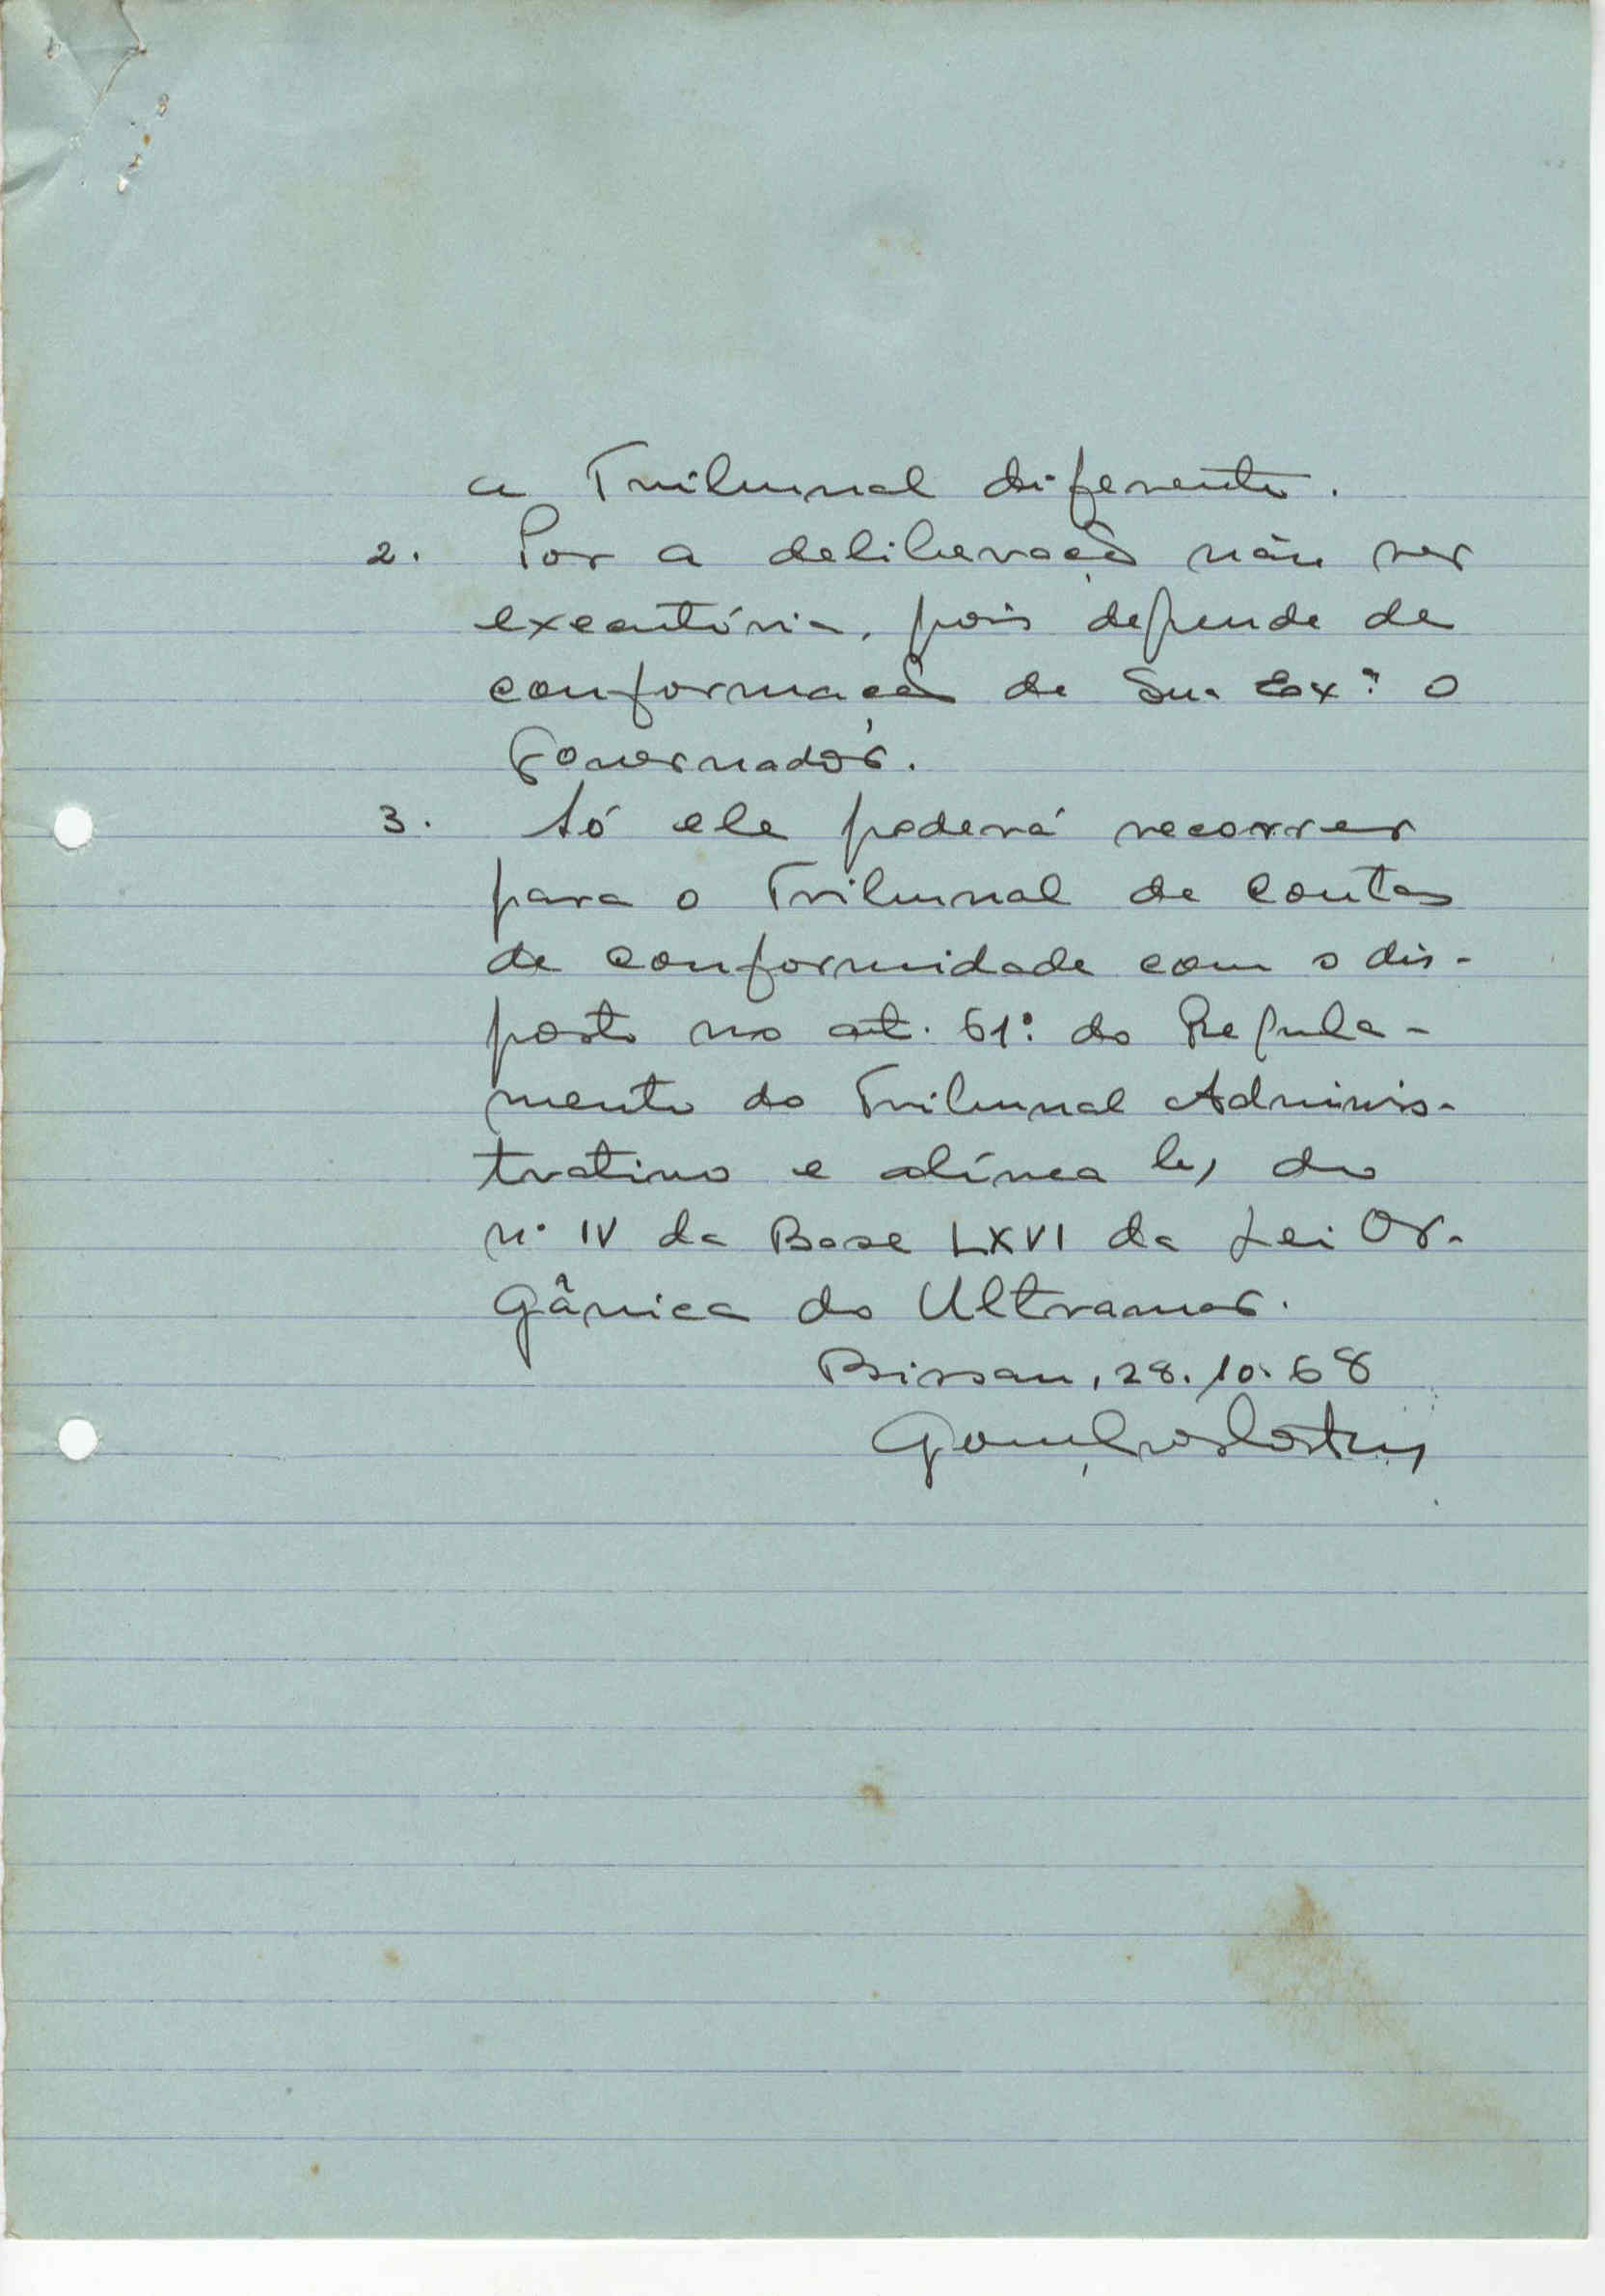 a Tribunal diferente.
2. Por a deliberação não ser
executória, pois depende de
conformação de Sua Exª o
Governador.
3. Só ele poderá recorrer
para o Tribunal de Contas
de conformidade com o dis-
posto no art. 61º do Regula-
mento do Tribunal Adminis-
trativo e alínea b) do
nº IV da Base LXVI da Lei Or-
gânica do Ultramar.
Bissau, 28.10.68